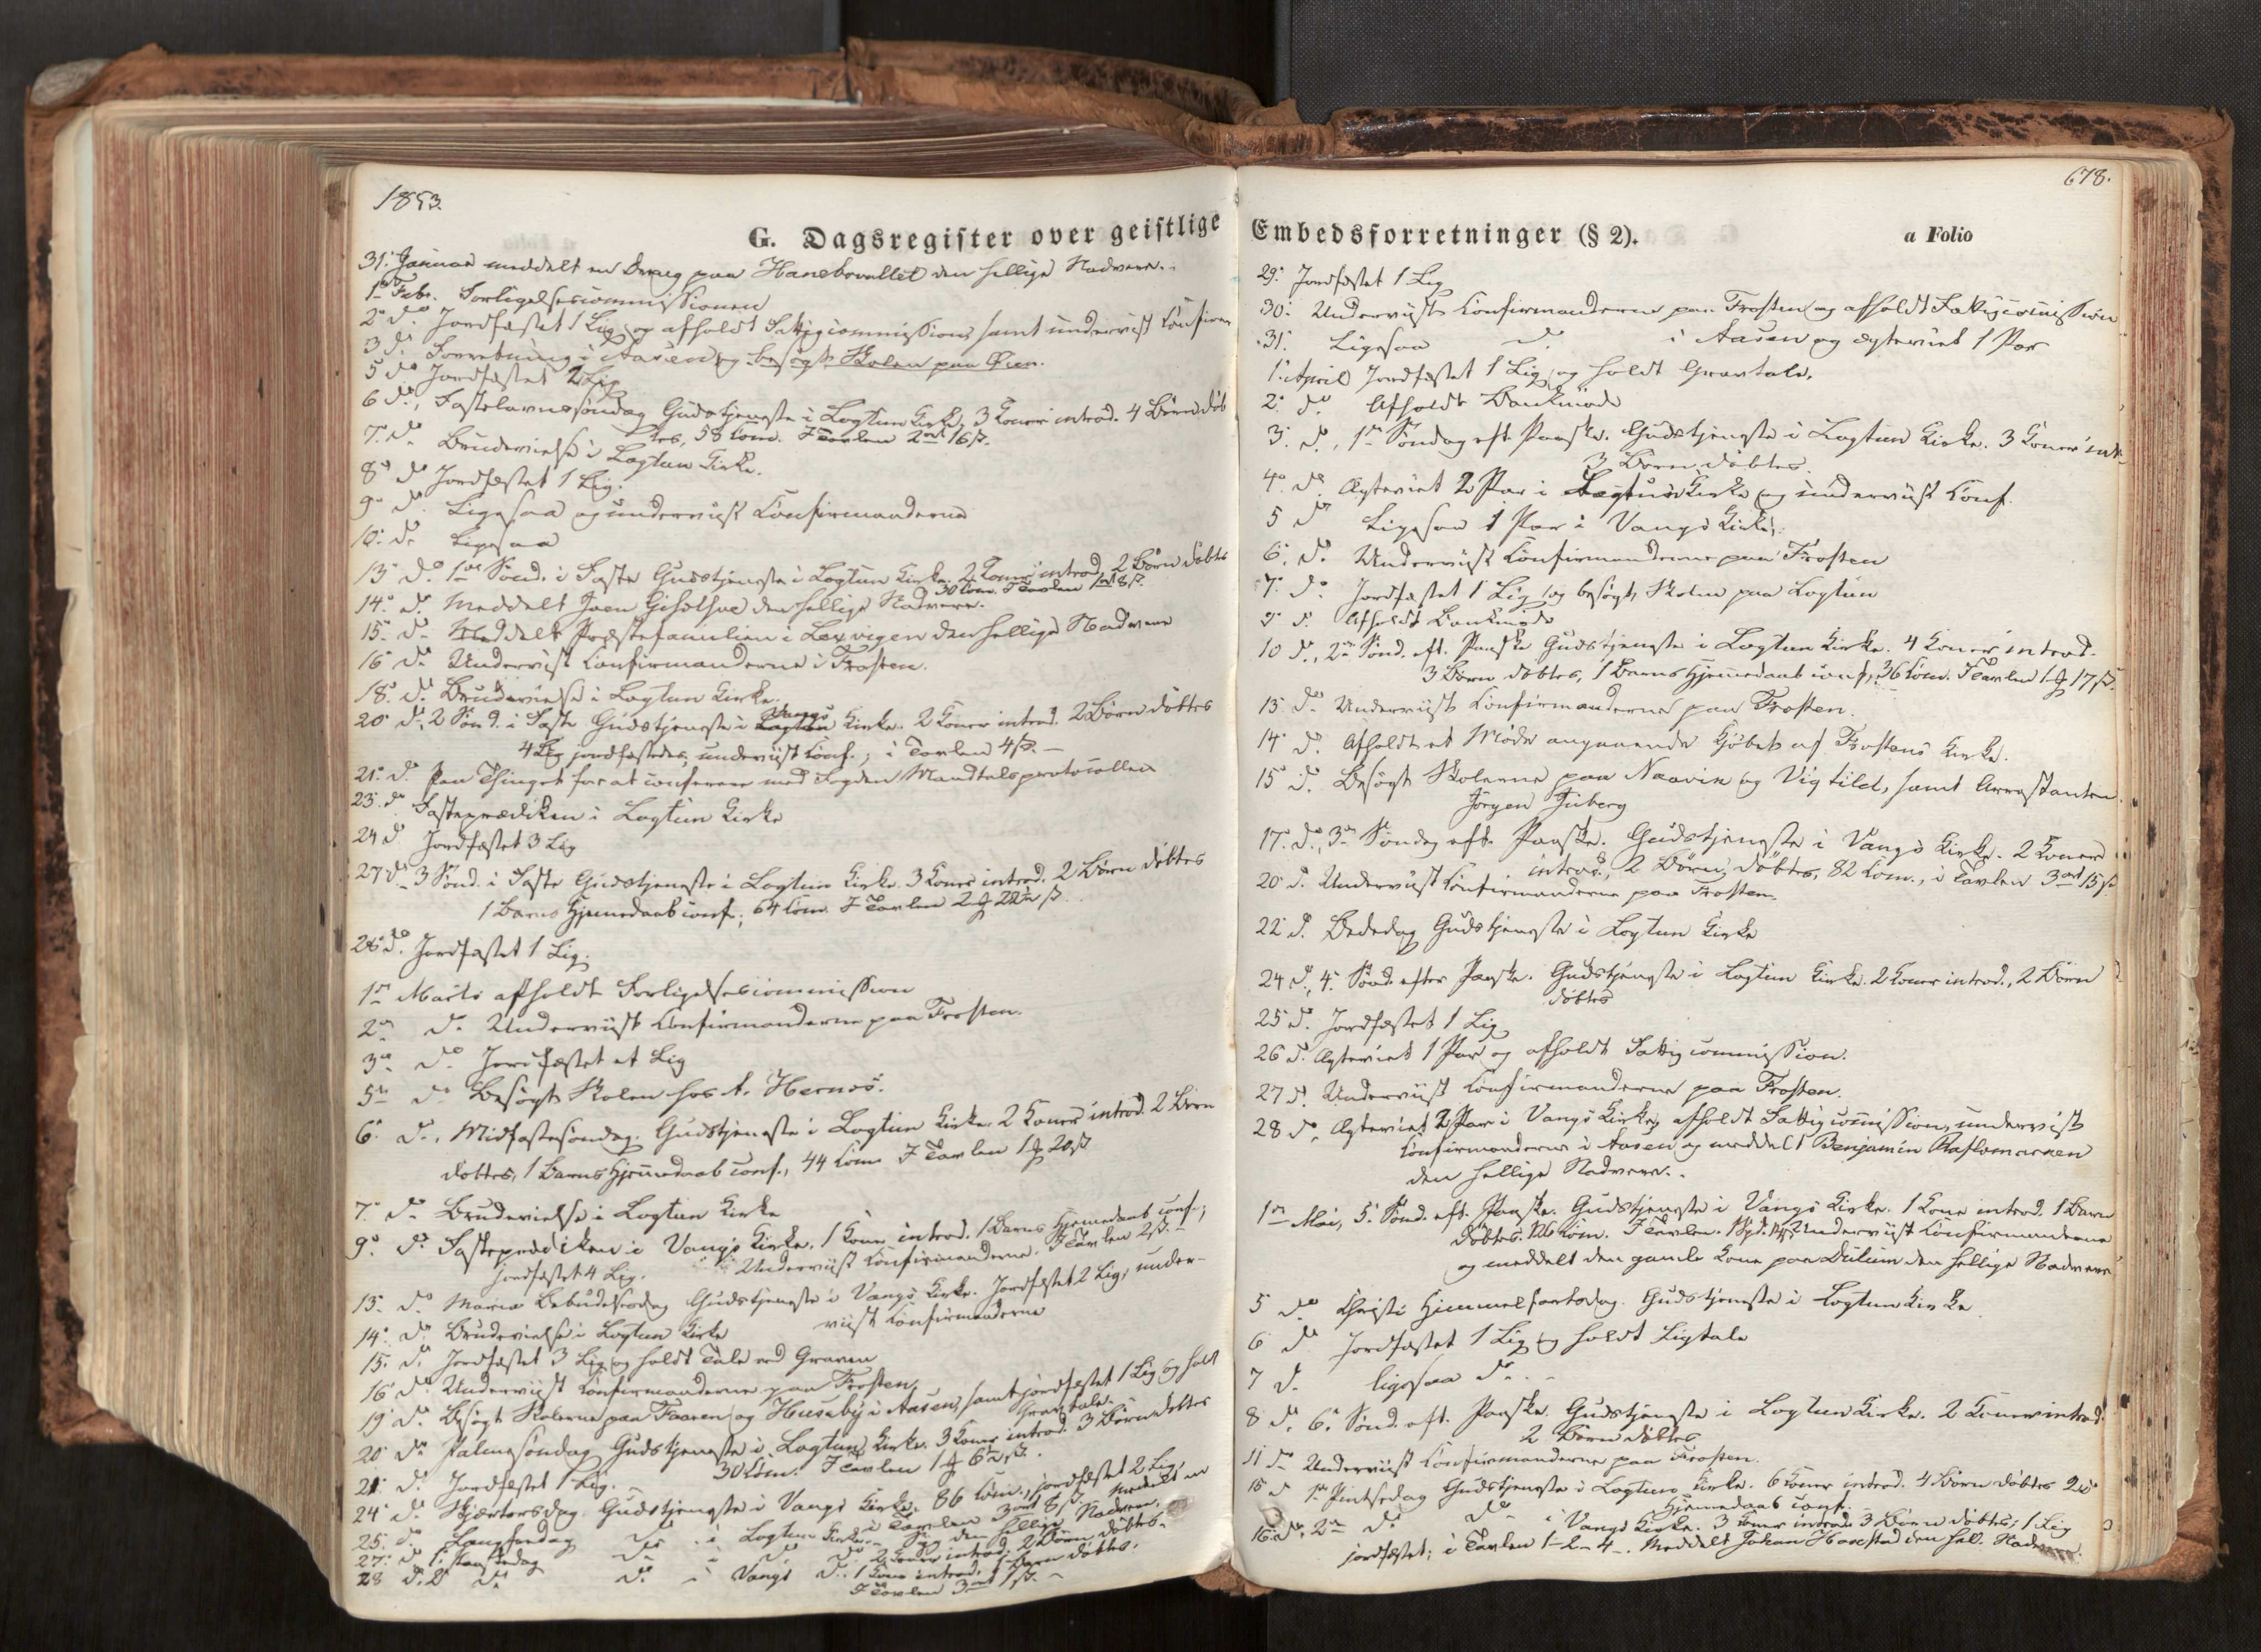 1853.
G. Dagsregister over geistlige
31. Januar meddelt en Dreng paa Hanebovallet den hellige Nadvere.
1ste Febr. Forligelsescommissionen
2. do Jordfæstet 1 Lig og afholdt Fattigcommission, samt underviist Confirm
3 do. Forretning i Aasen og besøgt Skolen paa Øien.
5 do Jordfæstet 2 Lig
6 do, Fastelavnssøndag Gudstjeneste i Logtun Kirke, 3 Koner introd. 4 Børn døb
tes, 58 Com. I Tavlen 2 ort 16 ß.
7. do Brudevielse i Logtun Kirke.
8. do Jordfæstet 1 Lig.
9. do. Ligesaa og underviist Confirmanderne
10. do Ligesaa
13 do. 1ste Sønd. i Faste Gudstjeneste i Logtun Kirke. 2 Koner introd. 2 Børn døbtes
30 Com. I Tavlen 1 ort 8 ß.
14. do. Meddelt den hellige Nadvere.
15. do. Meddelt Præstefamilien i Lexvigen den hellige Nadvere
16 do. Underviist Confirmanderne i Frosten.
18. do. Brudevielse i Logtun Kirke.
20. do. 2 Sønd. i Faste Gudstjeneste i Vangs Kirke. 2 Koner introd. 2 Børn døbtes
4 Lig jordfæstedes, underviist Conf.; i Tavlen 4 ß.
21. do. Paa Thinget for at conferere med Fogden Mandtalsprotocollen
23. do Fasteprædiken i Logtun Kirke
24 do Jordfæstet 3 Lig
27 do 3 Sønd. i Faste Gudstjeneste i Logtun Kirke. 3 Koner introd. 2 Børn døbtes
1 Barns Hjemmedaab conf.; 64 Com. I Tavlen 2 22 ß.
28 do. Jordfæstet 1 Lig.
1ste Marts afholdt Forligelsescommission
2den do. Underviist Confirmanderne paa Frosten.
3die do. Jordfæstet et Lig
5te do Besøgt Skolen hos A. Hernæs.
6. do., Midfastesøndag. Gudstjeneste i Logtun Kirke. 2 Koner introd. 2 Børn
døbtes, 1 Barns Hjemmedaab conf., 44 Com. I Tavlen 1 20 ß
7. do. Brudevielse i Logtun Kirke
9. do. Fasteprædiken i Vangs Kirke. 1 Kone introd. 1 Barns Hjemmedaab conf.;
jordfæstet 4 Lig. Underviist Confirmanderne. I Tavlen 2 ß.
13. do Mariæ Bebudelsesdag Gudstjeneste i Vangs Kirke. Jordfæstet 2 Lig, under-
viist Confirmanderne
14. do. Brudevielse i Logtun Kirke
15. do. Jordfæstet 3 Lig og holdt Tale ved Graven
16 do. Underviist Confirmanderne paa Frosten.
19 do. Besøgt Skolerne paa Faaren og Husebÿ i Aasen, samt jordfæstet 1 Lig og holdt
Gravtale.
20 do Palmesøndag Gudstjeneste i Logtuns Kirke. 3 Koner introd. 3 Børn døbtes
30 Com. I Tavlen 1 6 ß.
21. do. Jordfæstet 1 Lig.
24 do. Skjærtorsdag. Gudstjeneste i Vangs Kirke. 86 Com., jordfæstet 2 Lig,
i Tavlen 3 ort 8 ß. Meddelt en
25. do. Langfredag do i Logtun Kirke. den hellige Nadvere.
27. do 1. Paaskedag do. i do. do. 2 Koner introd. 2 Børn døbtes.
28 do. 2 do. do. i Vangs do. 1 Kone introd. 1 Barn døbtes.
I Tavlen 3 ort 1 ß.
678.
Embedsforretninger (§ 2).
a Folio
29. Jordfæstet 1 Lig
30. Underviist Confirmanderne paa Frosten og afholdt Fattigcomission
31. Ligesaa do. i Aasen og ægteviet 1 Par
1. April Jordfæstet 1 Lig og holdt Gravtale.
2. do. Afholdt Bankmøde
3. do, 1ste Søndag eft. Paaske. Gudstjeneste i Logtun Kirke. 3 Koner intr.
3 Børn døbtes.
4. do. Ægteviet 2 Par i Logtuns Kirke og underviist Conf.
5 do Ligesaa 1 Par i Vangs Kirke.
6. do. Underviist Confirmanderne paa Frosten
7. do. Jordfæstet 1 Lig og besøgt Skolen paa Logtun
9. do. Afholdt Bankmøde
10 do., 2den Sønd. eft. Paaske Gudstjeneste i Logtun Kirke. 4 Koner introd.
3 Børn døbtes, 1 Barns Hjemmedaab conf., 36 Com. I Tavlen 1 17 ß.
13. do. Underviist Confirmanderne paa Frosten.
14. do. Afholdt et Møde angaaende Kjøbet af Frostens Kirke.
15 do. Besøgt Skolerne paa Naavik og Vigtild, samt Arrestanten
Jørgen Juberg
17. do., 3die Søndag eft. Paaske. Gudstjeneste i Vangs Kirke. 2 Koner
introd., 2 Børn døbtes, 82 Com., i Tavlen 3 ort 15 ß
20 do. Underviist Confirmanderne paa Frosten.
22 do. Bededag Gudstjeneste i Logtun Kirke
24 do., 4. Sønd. efter Paaske. Gudstjeneste i Logtun Kirke. 2 Koner introd., 2 Børn
døbtes
25 do. Jordfæstet 1 Lig
26 do. Ægteviet 1 Par og afholdt Fattigcommission.
27 do. Underviist Confirmanderne paa Frosten.
28 do. Ægteviet 2 Par i Vangs Kirke, afholdt Fattigcomission, underviist
Confirmanderne i Aasen og meddelt Benjamin
den hellige Nadvere.
1ste Mai, 5. Sønd. eft. Paaske. Gudstjeneste i Vangs Kirke. 1 Kone introd. 1 Barn
døbtes. 126 Com. I Tavlen. 1 Spd. Underviist Confirmanderne
og meddelt den gamle Kone paa Dulum den hellige Nadvere
5 do Christi Himmelfartsdag. Gudstjeneste i Logtun Kirke
6 do Jordfæstet 1 Lig og holdt Ligtale
7 do. ligesaa do.
8 do. 6. Sønd. eft. Paaske. Gudstjeneste i Logtun Kirke. 2 Koner introd.
2 Børn døbtes
11 do Underviist Confirmanderne paa Frosten.
15 do 1ste Pintsedag Gudstjeneste i Logtuns Kirke. 6 Koner introd. 4 Børn døbtes 2
Hjemmedaab conf.
16. do. 2den do. do. i Vangs Kirke. 3 Koner introd. 3 Børn døbtes; 1 Lig
jordfæstet; i Tavlen 1-2-4-. Meddelt Johan Haxestad den hell. Nadvere.